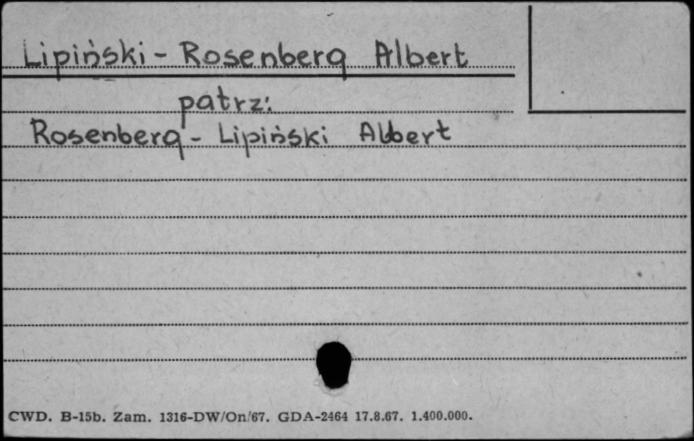 Lipiński - Rosenberg Albert
patrz:
Rosenberg - Lipiński Albert
CWD. B-15b. Zam. 1316-DW/On/67. GDA-2464 17.8.67. 1.400.000.